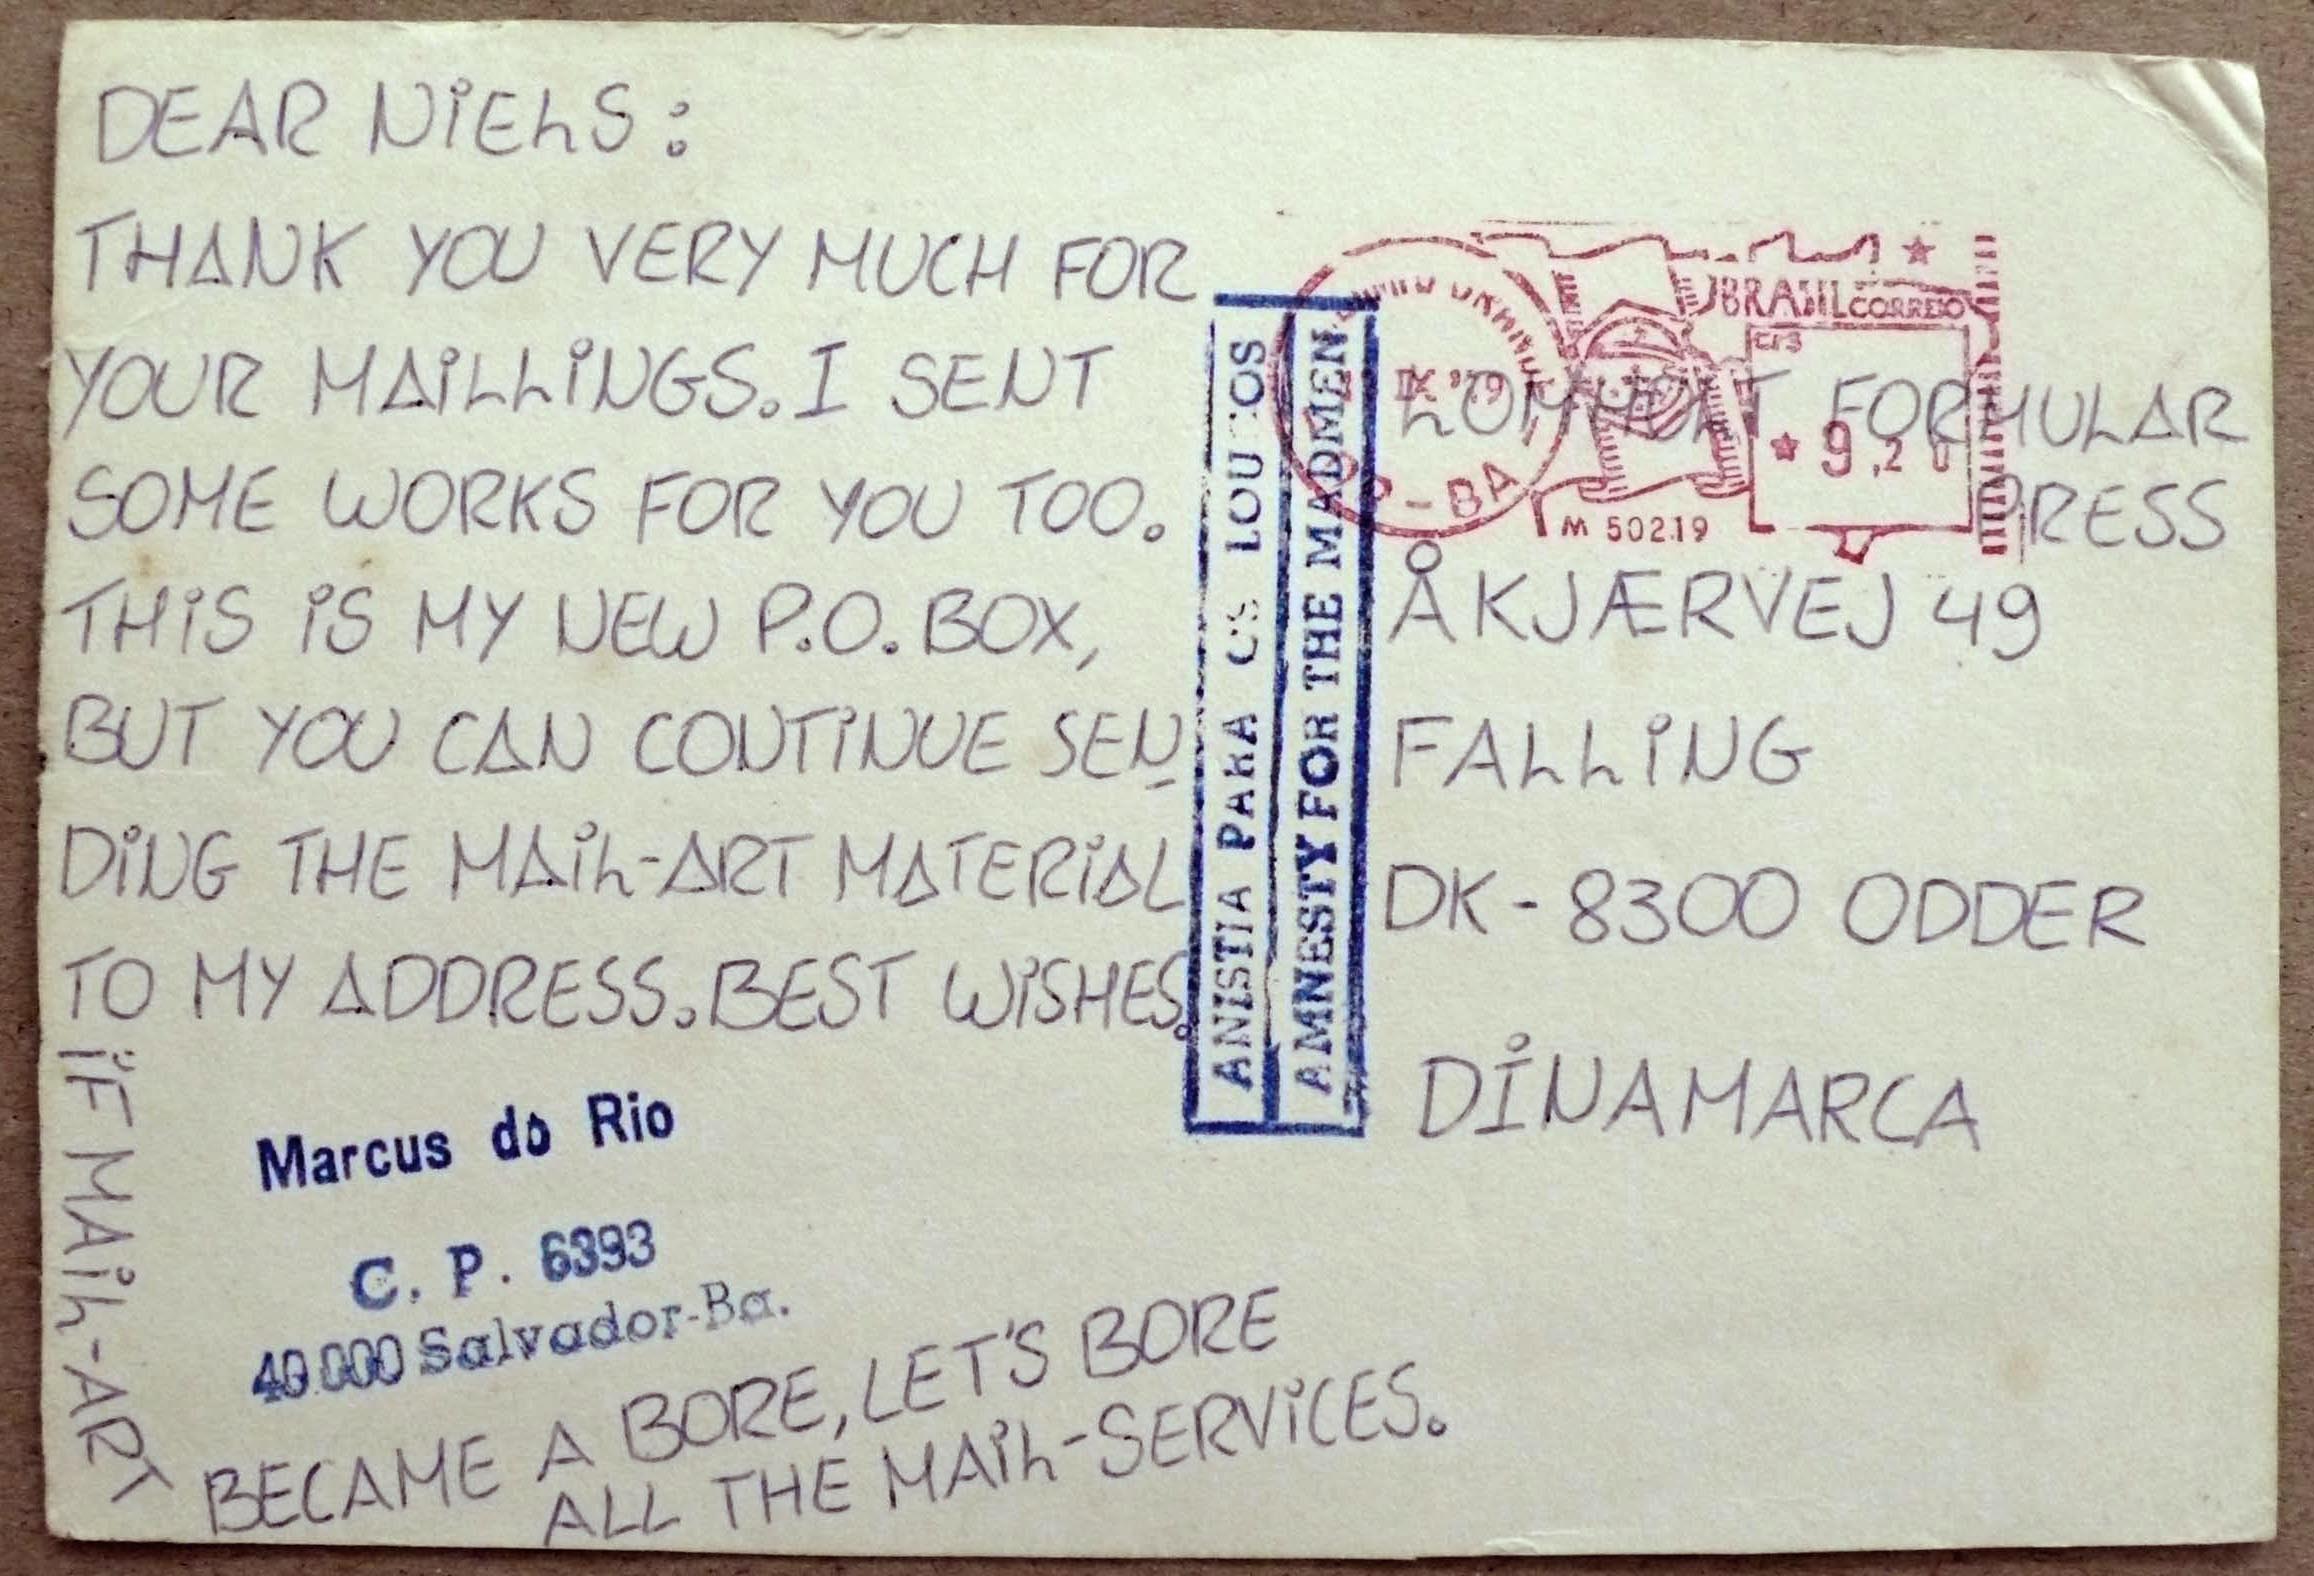 DEAR NIELS:
THANK YOU VERY MUCH FOR
YOUR MAILLINGS. I SENT
SOME WORKS FOR YOU TOO.
THIS IS MY NEW P.O. BOX,
BUT YOU CAN CONTINUE SEN
DING THE MAIL-ART MATERIAL
TO MY ADDRESS. BEST WISHES.
IF MAIL-ART
BECAME A BORE, LET'S BORE
ALL THE MAIL-SERVICES.
Marcus do Rio
C. P. 6393
40.000 Salvador-Ba.
ANISTIA PARA OS
AMNESTY FOR THE MADMEN
BRASIL CORREIO
IX '79
-BA
9,20
M 50219
FORMULAR
PRESS
ÅKJÆRVEJ 49
FALLING
DK-8300 ODDER
DINAMARCA